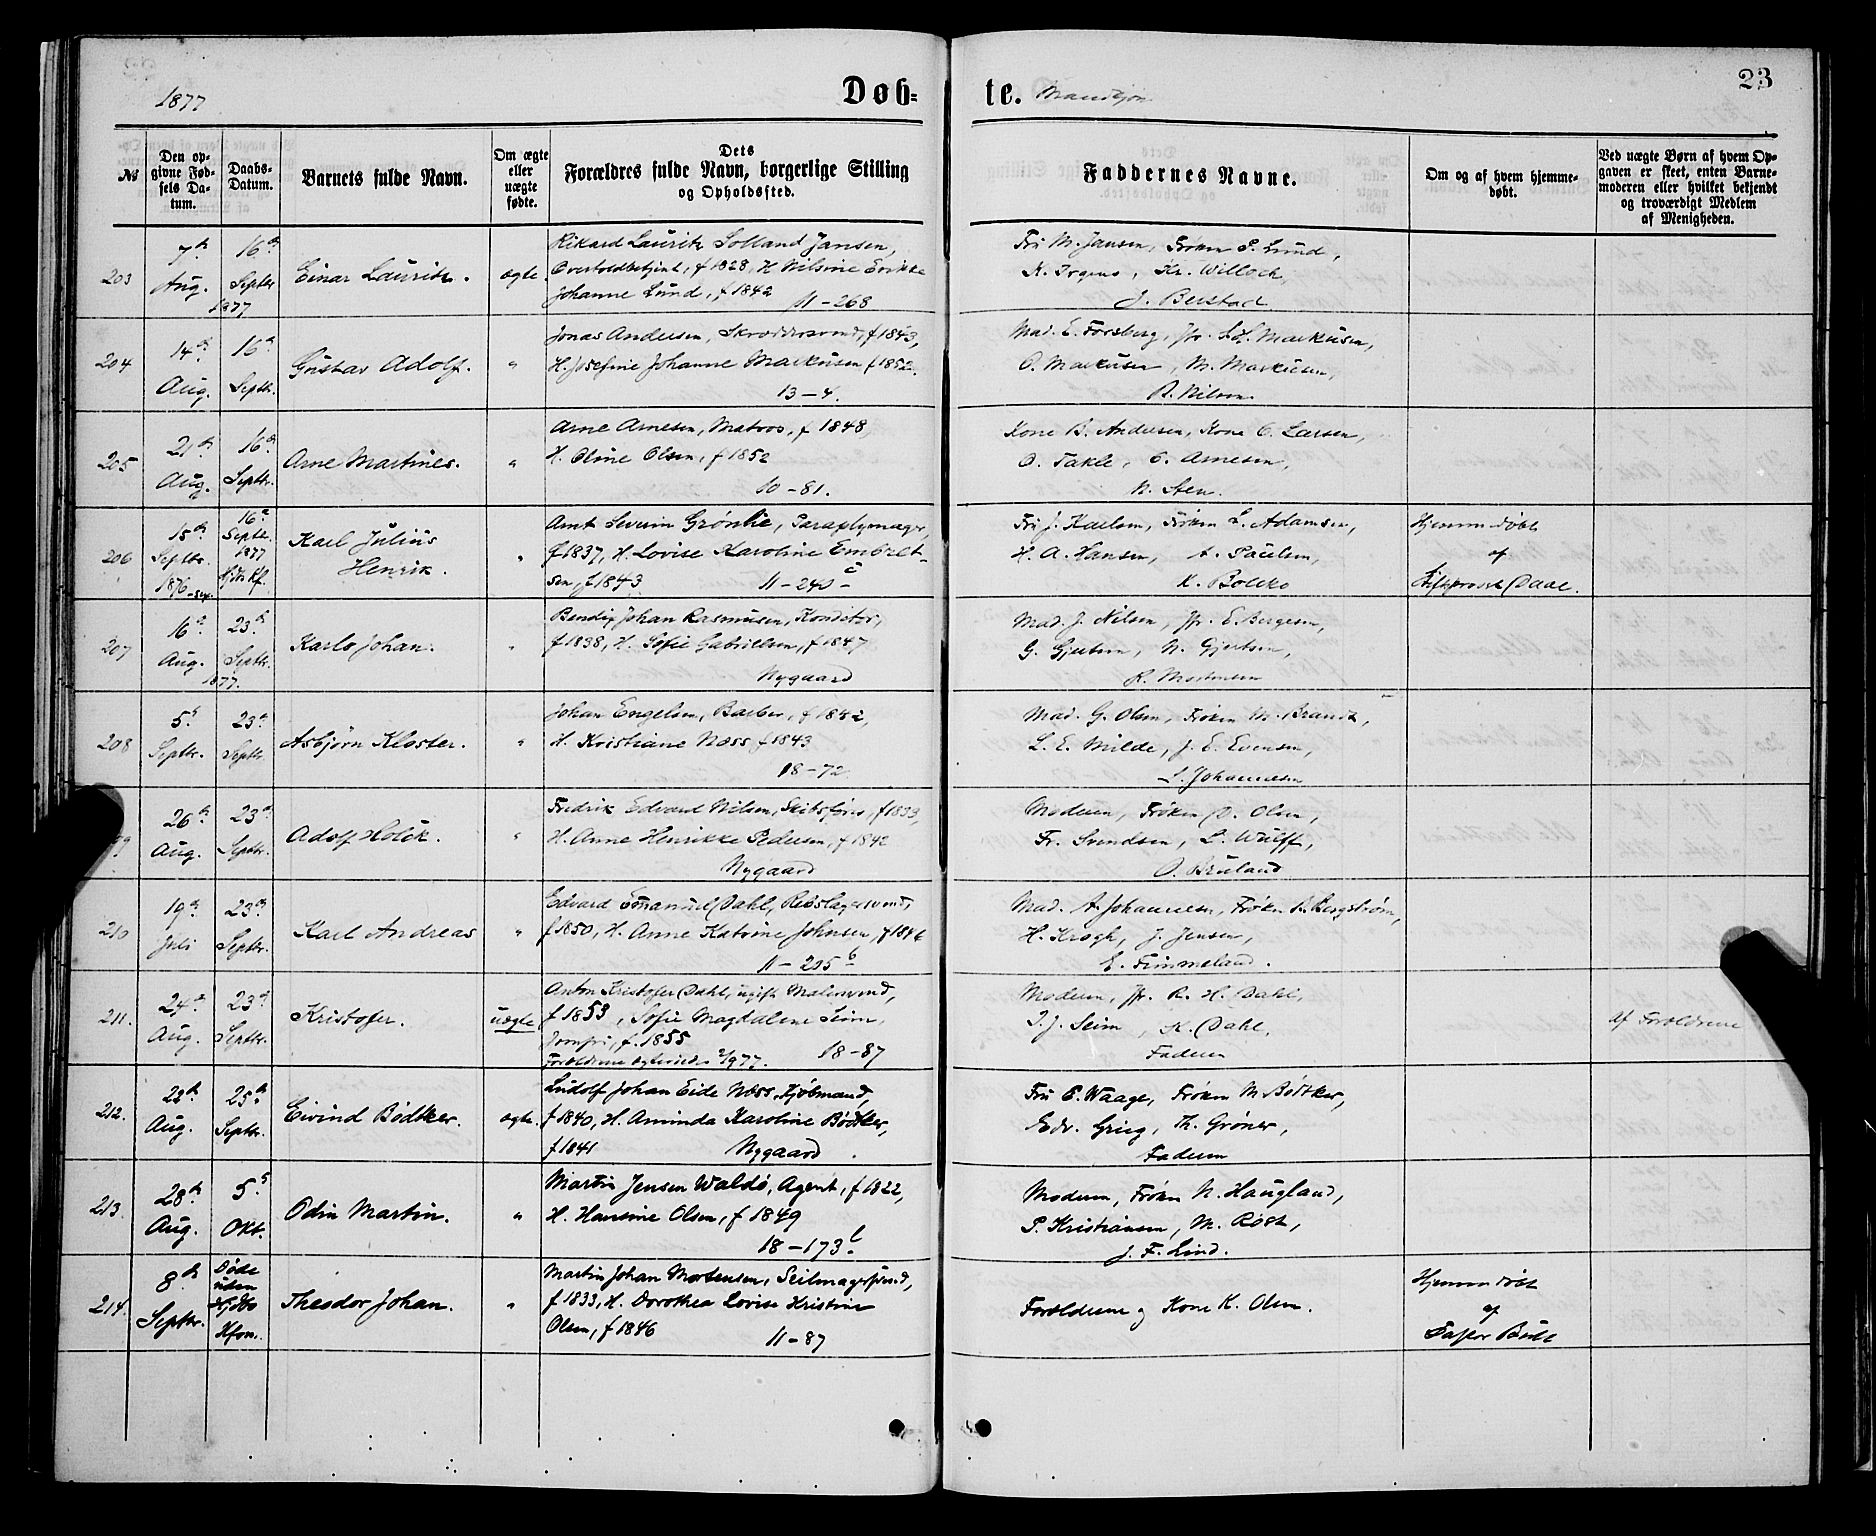 1877 Døb= te. Mandkjøn 23
№ | Den opgivne Fødsels Datum. | Daabs-Datum. | Barnets fulde Navn. | Om ægte eller uægte fødte. | Dets Forældres fulde Navn, borgerlige Stilling og Opholdssted. | Faddernes Navne. | Om og af hvem hjemmedøbt. | Ved uægte Børn af hvem Opgaven er skeet, enten Barnemoderen eller hvilket bekjendt og troværdigt Medlem af Menigheden.
203 7de Aug. 16de Septbr 1877 Einar Lauritz. ægte.
Rikard Lauritz Solland Jansen,
f 1828, H. Nilsine Erikke
Johanne Lund, f 1842 11-268
Fru M. Jansen, Frøken S. Lund,
N. Irgens, Kr. Willoch,
J. Berstad
204 14de Aug. 16de Septbr. Gustav Adolf. "
Jonas Andersen, Skræddersvend, f 1843,
H. Josefine Johanne Markusen f 1852.
13-4.
Mad. E. Forsberg, Jfr. Markusen,
O. Markusen, M. Markusen,
R. Nilsen.
205 21de Aug. 16de Septbr. Arne Martines. "
Arne Arnesen, Matros, f 1848,
H. Oline Olsen, f 1852
10-81.
Kone B. Andersen, Kone C. Larsen,
O. Takle, E. Arnesen,
N. Sten.
206 15de Septbr. 1876 16de Septbr. 1877 Karl Julius
Henrik. "
Amt Severin Grønlie, Paraplymager,
f 1837, H. Lovise Karoline Embret-
sen, f 1843 11-240 c
Fru J. Karlsen, Frøken L. Adamsen,
H. A. Hansen, A. Paulsen,
K. Bolcko
Hjemmedøbt
af
Stiftsprovst Daae.
207 16de Aug. 23de Septbr. 1877. Karlo Johan. "
Bendix Johan Rasmusen, Konditor,
f 1838, H. Sofie Gabrielsen, f 1847
Nygaard
Mad. J. Nilsen, Jfr. E. Bergesen,
G. Gjertsen, N. Gjertsen,
R. Mortensen
208 5te Septbr. 23de Septbr. Asbjørn Kloster. "
Johan Engelsen, Barber, f 1842,
H. Kristiane Næss, f 1843
18-72
Mad. G. Olsen, Frøken M. Brandt,
L. E. Milde, J. E. Evensen,
S. Johannesen
9 26de Aug. 23de Septbr. Adolf Holck. "
Fredrik Edvard Nilsen, Skibsfører, f 1833,
H. Anne Henrikke Pedersen, f 1842
Nygaard
Moderen, Frøken D. Olsen,
Fr. Svendsen, L. Wulff,
O. Bruland
210 19de Juli 23de Septbr. Karl Andreas "
Edvard Emanuel Dahl, Rebslagersvend,
f 1850, H. Anne Katrine Johnsen, f 1846
11-205 b
Mad. A. Johannesen, Frøken R. Bergstrøm,
H. Krogh, J. Jensen,
E. Fimmeland.
211. 24de Aug. 23de Septbr. Kristofer. uægte
Anton Kristofer Dahl, ugift Malersvend,
f 1853, Sofie Magdalene Seim,
Jomfru, f. 1855
Forældrene ægteviede 2/9 77. 18-87
Moderen, Jfr. R. H. Dahl,
I. J. Seim, K. Dahl,
Faderen
Af Forældrene
212. 23de Aug. 25de Septbr. Eivind Bødtker. ægte.
Ludolf Johan Eide Næss, Kjøbmand,
f 1840, H. Aminda Karoline Bødtker,
f 1841 Nygaard.
Fru E. Waage, Frøken M. Bødtker,
Edv. Grieg, Th. Grøner,
Faderen
213. 28de Aug. 5te Okt. Odin Martin. "
Martin Jensen Waldø, Agent, f 1822,
H. Hansine Olsen, f 1849
18-173 b
Moderen, Frøken N. Haugland,
P. Kristiansen, M. Røst,
J. F. Lind.
214. 8de Septbr. Døde
uden
Hjdbs
Kfon. Theodor Johan. "
Martin Johan Mortensen, Seilmagersvend,
f 1833, H. Dorothea Lovise Kristine
Olsen, f 1846 11-87
Forældrene og Kone K. Olsen.
Hjemmedøbt
af
Pastor Bull